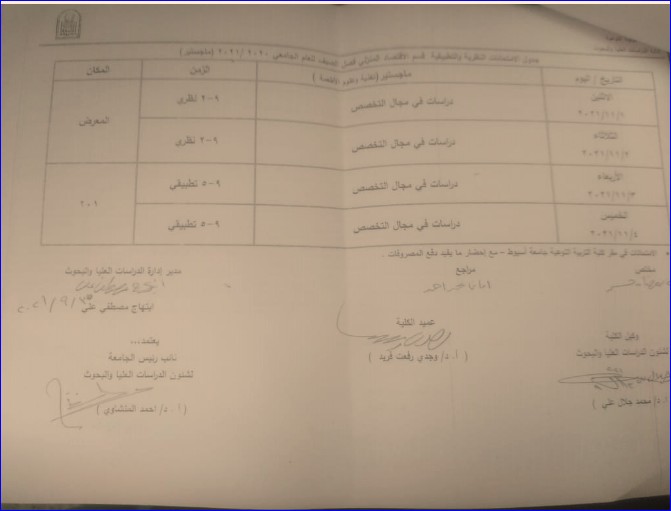 جدول الامتحانات النظرية والتطبيقية قسم الاقتصاد المنزلي فصل الصيف للعام الجامعي ٢٠٢٠/٢٠٢١ (ماجستير)
التاريخ / اليوم
ماجستير (تغذية وعلوم الأطعمة)
الزمن
المكان
الاثنين
٢٠٢١/١١/١
دراسات في مجال التخصص
٩-٢ نظري
المعرض
الثلاثاء
٢٠٢١/١١/٢
دراسات في مجال التخصص
٩-٢ نظري
الأربعاء
٢٠٢١/١١/٣
دراسات في مجال التخصص
٩-٥ تطبيقي
٢٠٩
الخميس
٢٠٢١/١١/٤
دراسات في مجال التخصص
٩-٥ تطبيقي
الامتحانات في مقر كلية التربية النوعية جامعة أسيوط - مع إحضار ما يفيد دفع المصروفات .
مختص
مراجع
مدير إدارة الدراسات العليا والبحوث
ابتهاج مصطفي علي
وكيل الكلية
لشئون الدراسات العليا والبحوث
ا.د/ محمد جلال علي )
عميد الكلية
( أ.د/ وجدي رفعت فريد )
يعتمد...
نائب رئيس الجامعة
لشئون الدراسات العليا والبحوث
( أ.د/ احمد المنشاوي )